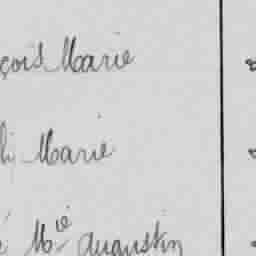 çois Marie
Marie
Mie Augustin